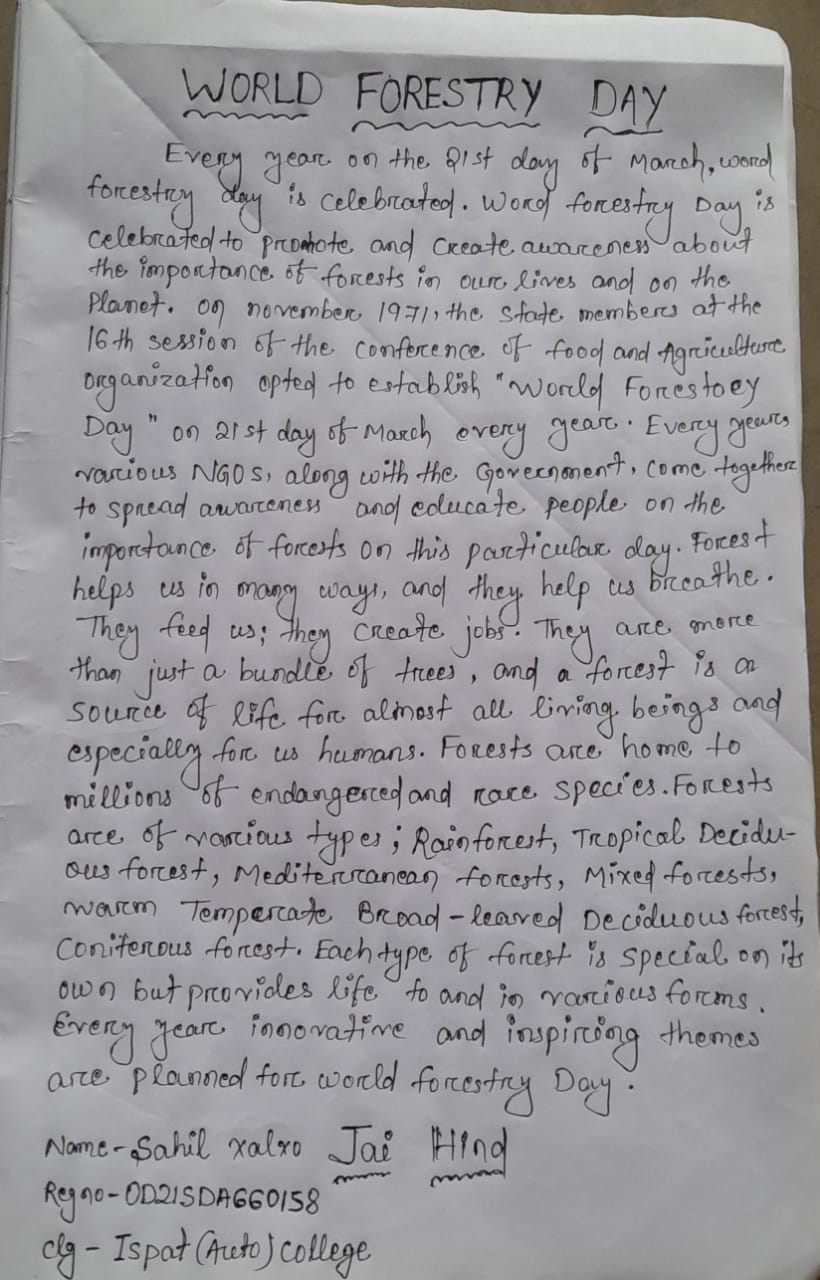 WORLD FORESTRY DAY
Every year on the 21st day of March, word
forestry day is celebrated. Word forestry Day is
celebrated to promote and create awareness about
the importance of forests in our lives and on the
Planet. on november 1971, the state members at the
16th session of the conference of food and Agriculture
organization opted to establish "World Forestoey
Day" on 21st day of March every year. Every years
various NGOs, along with the Government, come together
to spread awareness and educate people on the
importance of forests on this particular day. Forest
helps us in many ways, and they help us breathe.
They feed us; they create jobs. They are more
than just a bundle of trees, and a forest is a
source of life for almost all living beings and
especially for us humans. Forests are home to
millions of endangered and rare species. Forests
are of various types; Rainforest, Tropical Decidu-
ous forest, Mediterranean forests, Mixed forests,
warm Temperate Broad-leaved Deciduous forest,
Coniferous forest. Each type of forest is special on its
own but provides life to and in various forms.
Every year innovative and inspiring themes
are planned for world forestry Day.
Name-Sahil xalxo Jai Hind
Reg no-OD21SDA660158
clg - Ispat (Auto) college